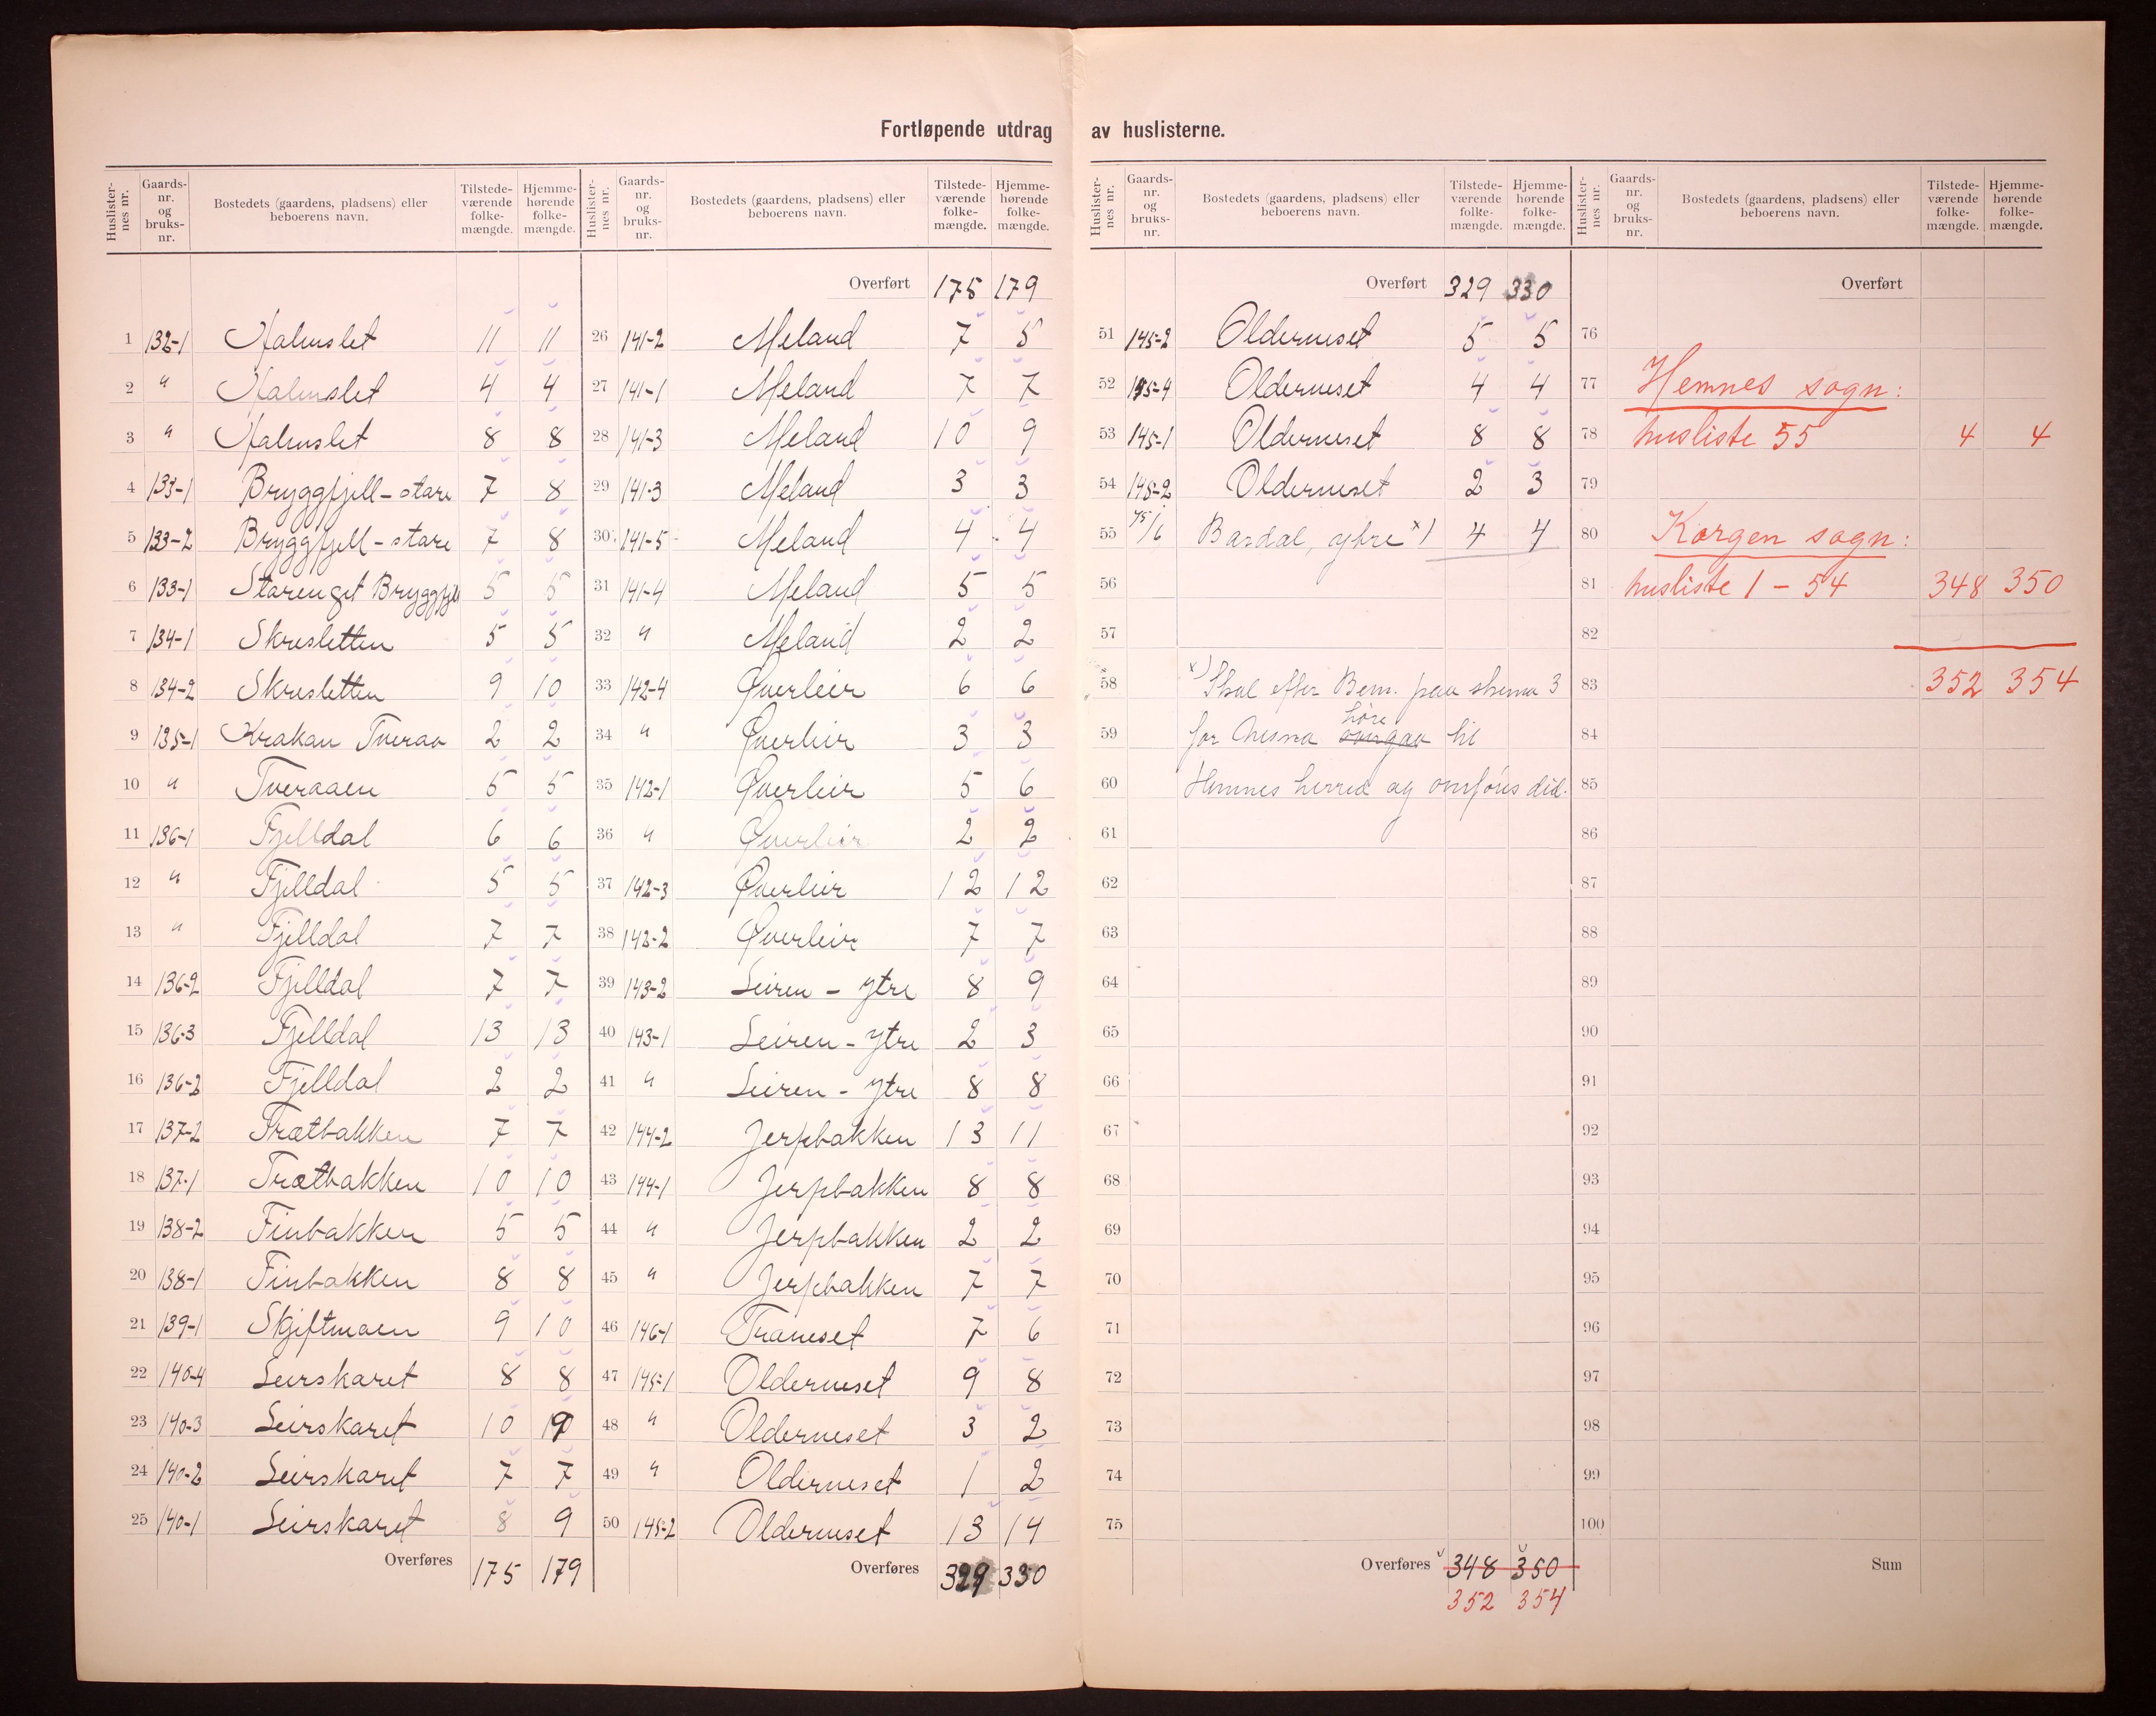 Fortløpende utdrag av huslisterne.
Huslisternes nr. Gaards-nr. og bruks-nr. Bostedets (gaardens, pladsens) eller beboerens navn. Tilstede-værende folke-mængde. Hjemme-hørende folke-mængde.
1 132-1 Halmslet 11 11
2 " Halmslet 4 4
3 " Halmslet 8 8
4 133-1 Bryggfjell-stare 7 8
5 133-2 Bryggfjell-stare 7 8
6 133-1 Starenget Bryggfjell 5 5
7 134-1 Skresletten 5 5
8 134-2 Skresletten 9 10
9 135-1 Krakan Tveraa 2 2
10 " Tveraaen 5 5
11 136-1 Fjelldal 6 6
12 " Fjelldal 5 5
13 " Fjelldal 7 7
14 136-2 Fjelldal 7 7
15 136-3 Fjelldal 13 13
16 136-2 Fjelldal 2 2
17 137-2 Trætbakken 7 7
18 137-1 Trætbakken 10 10
19 138-2 Finbakken 5 5
20 138-1 Finbakken 8 8
21 139-1 Skjiftmoen 9 10
22 140-4 Leirskaret 8 8
23 140-3 Leirskaret 10
24 140-2 Leirskaret 7 7
25 140-1 Leirskaret 8 9
Overføres 175 179
Huslisternes nr. Gaards-nr. og bruks-nr. Bostedets (gaardens, pladsens) eller beboerens navn. Tilstede-værende folke-mængde. Hjemme-hørende folke-mængde.
Overført 175 179
26 141-2 Meland 7 5
27 141-1 Meland 7 7
28 141-3 Meland 10 9
29 141-3 Meland 3 3
30 141-5 Meland 4 4
31 141-4 Meland 5 5
32 " Meland 2 2
33 142-4 Øverleir 6 6
34 " Øverleir 3 3
35 142-1 Øverleir 5 6
36 " Øverleir 2 2
37 142-3 Øverleir 12 12
38 142-2 Øverleir 7 7
39 143-2 Leiren - ytre 8 9
40 143-1 Leiren - ytre 2 3
41 " Leiren - ytre 8 8
42 144-2 Jerpbakken 13 11
43 144-1 Jerpbakken 8 8
44 " Jerpbakken 2 2
45 " Jerpbakken 7 7
46 146-1 Traneset 7 6
47 145-1 Olderneset 9 8
48 " Olderneset 3 2
49 " Olderneset 1 2
50 145-2 Olderneset 13 14
Overføres 329 330
Huslisternes nr. Gaards-nr. og bruks-nr. Bostedets (gaardens, pladsens) eller beboerens navn. Tilstede-værende folke-mængde. Hjemme-hørende folke-mængde.
Overført 329 330
51 145-2 Olderneset 5 5
52 145-4 Olderneset 4 4
53 145-1 Olderneset 8 8
54 145-2 Olderneset 2 3
55 75/6 Bardal, ytre x) 4 4
56
57
58 x) Skal efter Bem. paa skema 3
59 for Nesna høre til
60 Hemnes herred og overføres did.
61
62
63
64
65
66
67
68
69
70
71
72
73
74
75
Overføres 348 350
352 354
Huslisternes nr. Gaards-nr. og bruks-nr. Bostedets (gaardens, pladsens) eller beboerens navn. Tilstede-værende folke-mængde. Hjemme-hørende folke-mængde.
Overført
76
77 Hemnes sogn:
78 husliste 55 4 4
79
80 Korgen sogn:
81 husliste 1 - 54 348 350
82
83 352 354
84
85
86
87
88
89
90
91
92
93
94
95
96
97
98
99
100
Sum